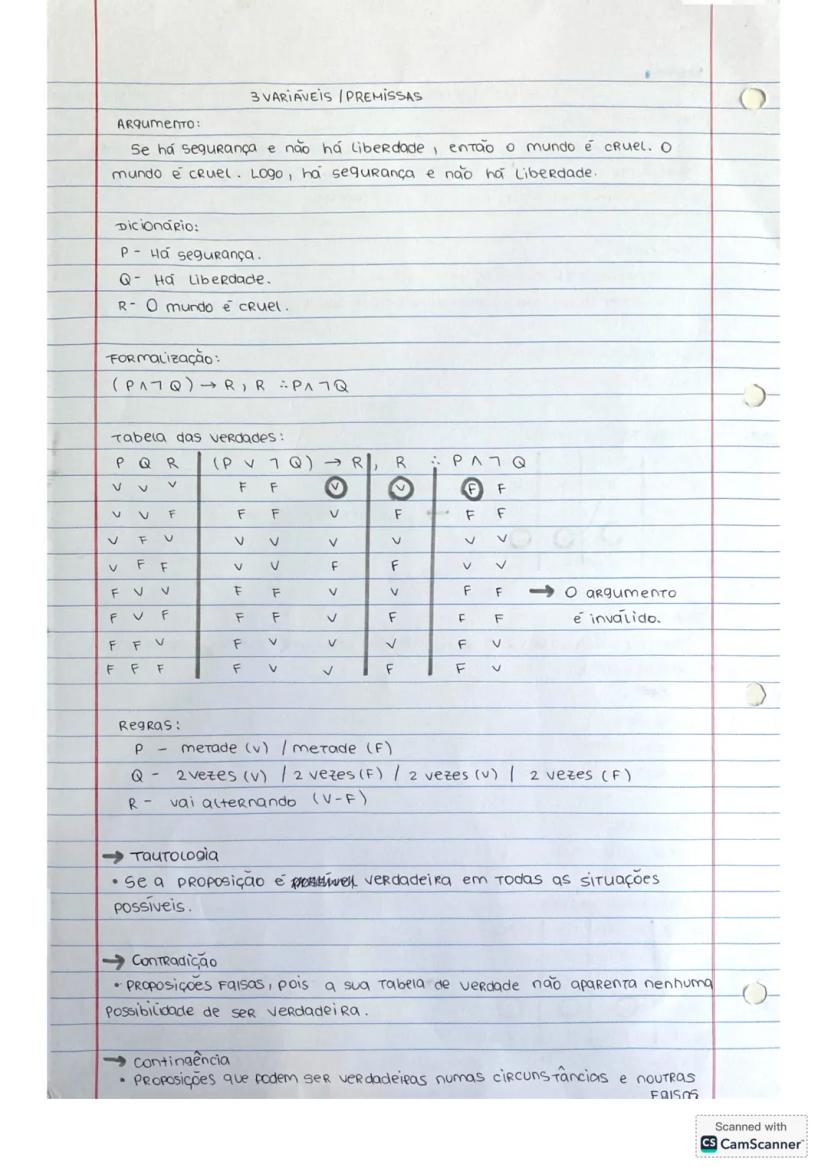 3 VARIÁVEIS / PREMISSAS
Argumento:
Se há segurança e não há liberdade, então o mundo é cruel. O
mundo é cruel. Logo, há segurança e não há liberdade.
Dicionário:
P - Há segurança.
Q - Há liberdade.
R - O mundo é cruel.
Formalização:
(P ∧ ¬ Q) → R, R ∴ P ∧ ¬ Q
Tabela das verdades:
P Q R | (P ∨ ¬ Q) → R | , R ∴ | P ∧ ¬ Q
V V V | F F V | V | F F
V V F | F F V | F | F F
V F V | V V V | V | V V
V F F | V V F | F | V V
F V V | F F V | V | F F → O argumento
F V F | F F V | F | F F é inválido.
F F V | F V V | V | F V
F F F | F V V | F | F V
Regras:
P - metade (V) / metade (F)
Q - 2 vezes (V) / 2 vezes (F) / 2 vezes (V) / 2 vezes (F)
R - vai alternando (V-F)
→ Tautologia
• Se a proposição é possível verdadeira em todas as situações
possíveis.
→ Contradição
• Proposições falsas, pois a sua tabela de verdade não aparenta nenhuma
possibilidade de ser verdadeira.
→ Contingência
• Proposições que podem ser verdadeiras numas circunstâncias e noutras
falsas
Scanned with
CS CamScanner